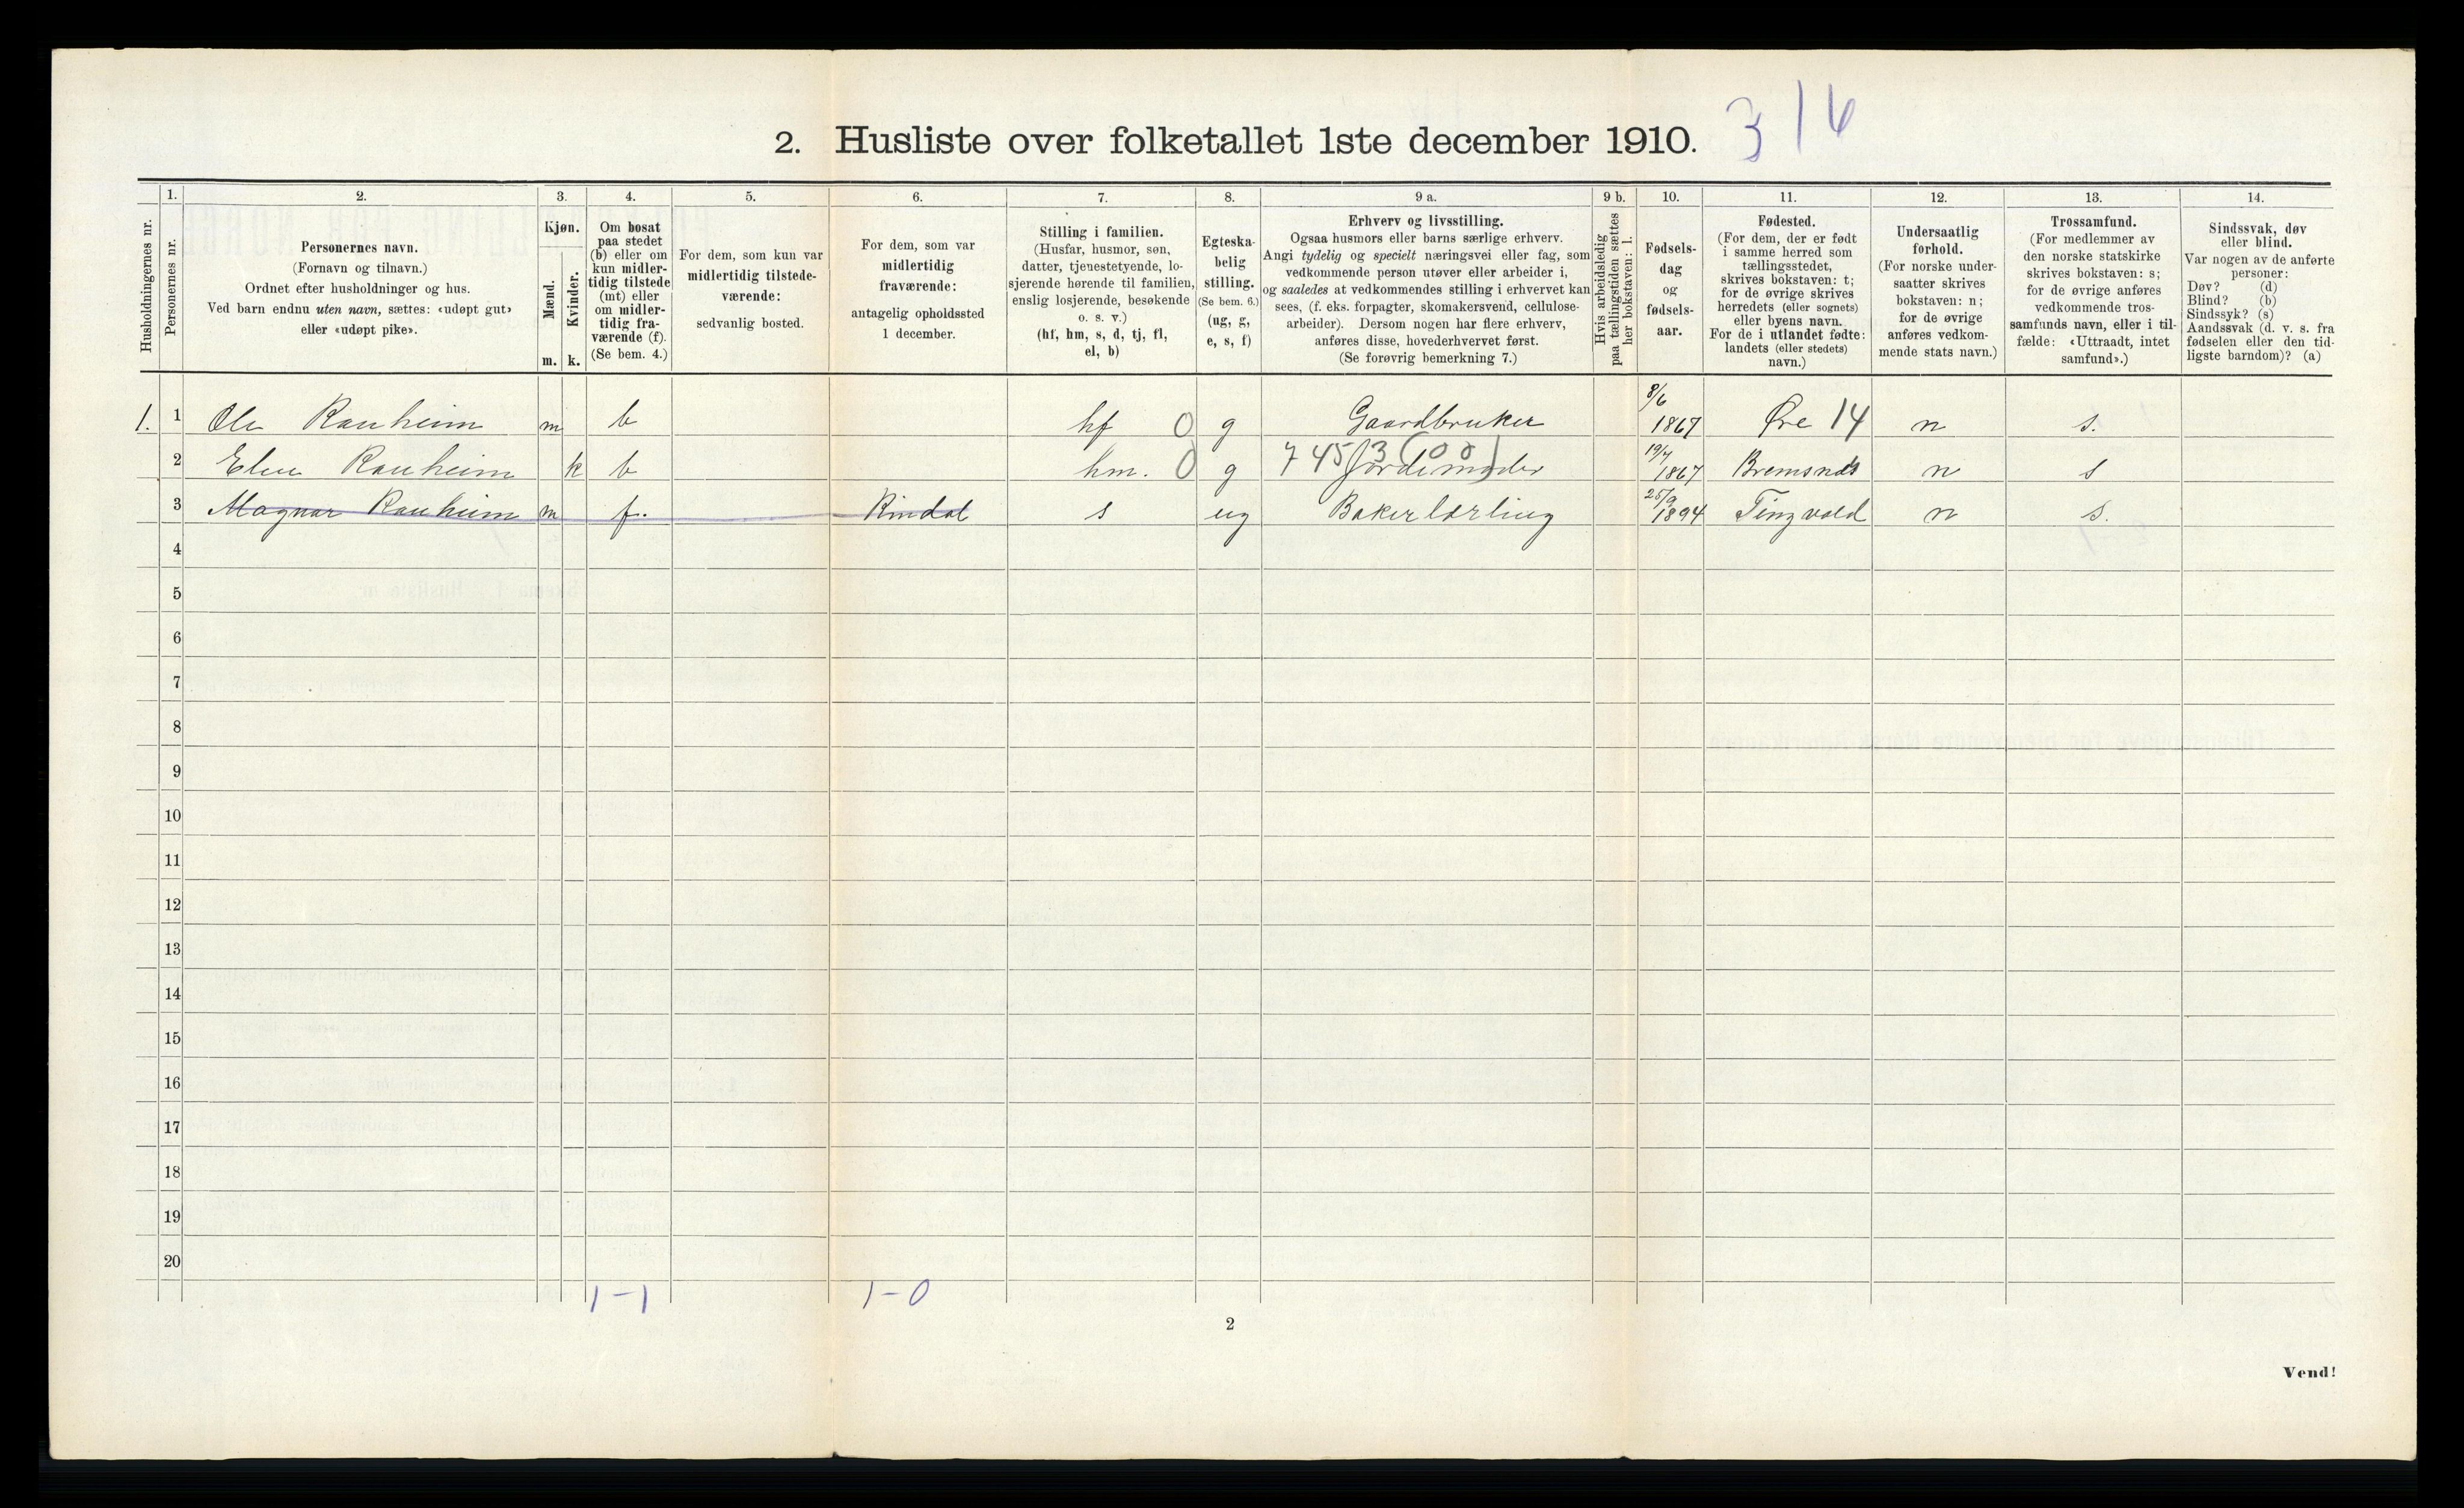 2. Husliste over folketallet 1ste december 1910. 316
1. 2. 3. 4. 5. 6. 7. 8. 9 a. 9 b. 10. 11. 12. 13. 14.
Husholdningernes nr.
Personernes nr.
Personernes navn.
(Fornavn og tilnavn.)
Ordnet efter husholdninger og hus.
Ved barn endnu uten navn, sættes: «udøpt gut»
eller «udøpt pike».
Kjøn.
Mænd.
Kvinder.
m. k.
Om bosat
paa stedet
(b) eller om
kun midler-
tidig tilstede
(mt) eller
om midler-
tidig fra-
værende (f).
(Se bem. 4.)
For dem, som kun var
midlertidig tilstede-
værende:
sedvanlig bosted.
For dem, som var
midlertidig
fraværende:
antagelig opholdssted
1 december.
Stilling i familien.
(Husfar, husmor, søn,
datter, tjenestetyende, lo-
sjerende hørende til familien,
enslig losjerende, besøkende
o. s. v.)
(hf, hm, s, d, tj, fl,
el, b)
Egteska-
belig
stilling.
(Se bem. 6.)
(ug, g,
e, s, f)
Erhverv og livsstilling.
Ogsaa husmors eller barns særlige erhverv.
Angi tydelig og specielt næringsvei eller fag, som
vedkommende person utøver eller arbeider i,
og saaledes at vedkommendes stilling i erhvervet kan
sees, (f. eks. forpagter, skomakersvend, cellulose-
arbeider). Dersom nogen har flere erhverv,
anføres disse, hovederhvervet først.
(Se forøvrig bemerkning 7.)
Hvis arbeidsledig
paa tællingstiden sættes
her bokstaven: l.
Fødsels-
dag
og
fødsels-
aar.
Fødested.
(For dem, der er født
i samme herred som
tællingsstedet,
skrives bokstaven: t;
for de øvrige skrives
herredets (eller sognets)
eller byens navn.
For de i utlandet fødte:
landets (eller stedets)
navn.)
Undersaatlig
forhold.
(For norske under-
saatter skrives
bokstaven: n;
for de øvrige
anføres vedkom-
mende stats navn.)
Trossamfund.
(For medlemmer av
den norske statskirke
skrives bokstaven: s;
for de øvrige anføres
vedkommende tros-
samfunds navn, eller i til-
fælde: «Uttraadt, intet
samfund».)
Sindssvak, døv
eller blind.
Var nogen av de anførte
personer:
Døv? (d)
Blind? (b)
Sindssyk? (s)
Aandssvak (d. v. s. fra
fødselen eller den tid-
ligste barndom)? (a)
1. 1 Ole Ranheim m b hf 0 g Gaardbruker 8/6 1867 Øre 14 n s.
2 Elen Ranheim k b hm. 0 g 7453 (00) Jordemoder 19/7 1867 Bremsnes n s
3 Magnar Ranheim m f. Rindal s ug Bakerlærling 25/9 1894 Tingvold n s.
4
5
6
7
8
9
10
11
12
13
14
15
16
17
18
19
20
1-1 1-0
2
Vend!